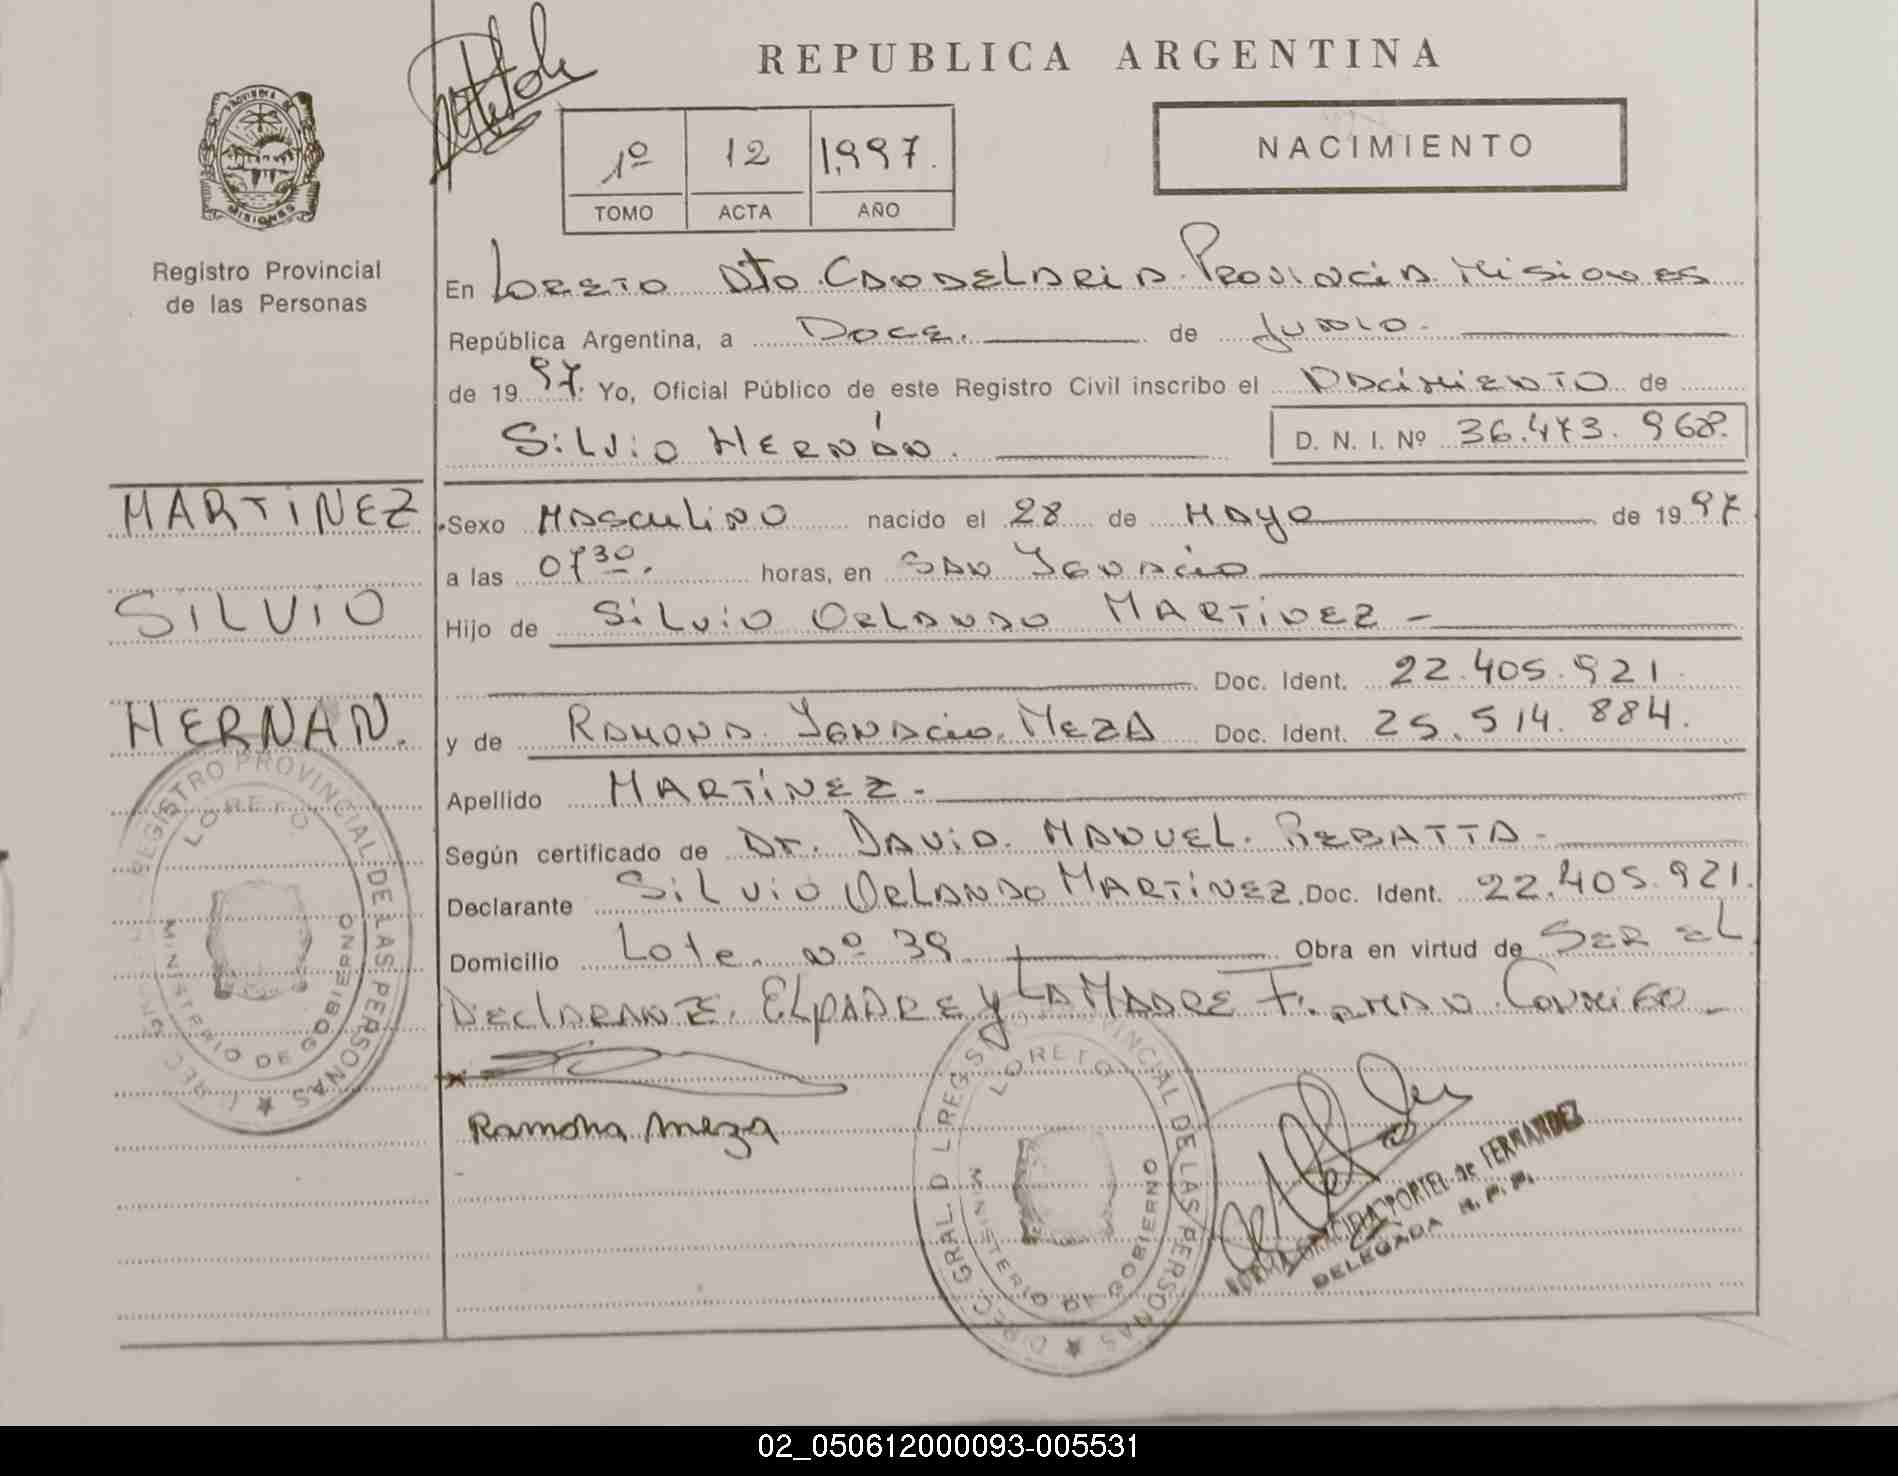 REPUBLICA ARGENTINA
PROVINCIA DE
MISIONES
Registro Provincial
de las Personas
1º 12 1,997.
TOMO ACTA AÑO
NACIMIENTO
En LORETO Dto. CANDELARIA. PROVINCIA. MISIONES
República Argentina, a DOCE. de JUNIO.
de 1997. Yo, Oficial Público de este Registro Civil inscribo el NACIMIENTO de
SILVIO HERNÁN. D. N. I. Nº 36.473.968.
MARTINEZ
SILVIO
HERNAN.
Sexo MASCULINO nacido el 28 de MAYO de 1997
a las 07 30. horas, en SAN IGNACIO
Hijo de SILVIO ORLANDO MARTINEZ -
Doc. Ident. 22.405.921.
y de RAMONA. IGNACIO. MEZA Doc. Ident. 25.514.884.
Apellido MARTÍNEZ -
Según certificado de Dr. DAVID. MANUEL. REBATTA -
Declarante SILVIO ORLANDO MARTÍNEZ. Doc. Ident. 22.405.921.
Domicilio Lote. Nº 39 Obra en virtud de SER EL
DECLARANTE. EL PADRE Y LA MADRE FIRMAN CONMIGO -
Ramona Meza
REGISTRO PROVINCIAL DE LAS PERSONAS
LORETO
MINISTERIO DE GOBIERNO
DIREC. GRAL. D L REGISTRO PROVINCIAL DE LAS PERSONAS
LORETO
MINISTERIO DE GOBIERNO
NORMA GRACIELA PORTEL de FERNANDEZ
DELEGADA R. P. P.
02_050612000093-005531